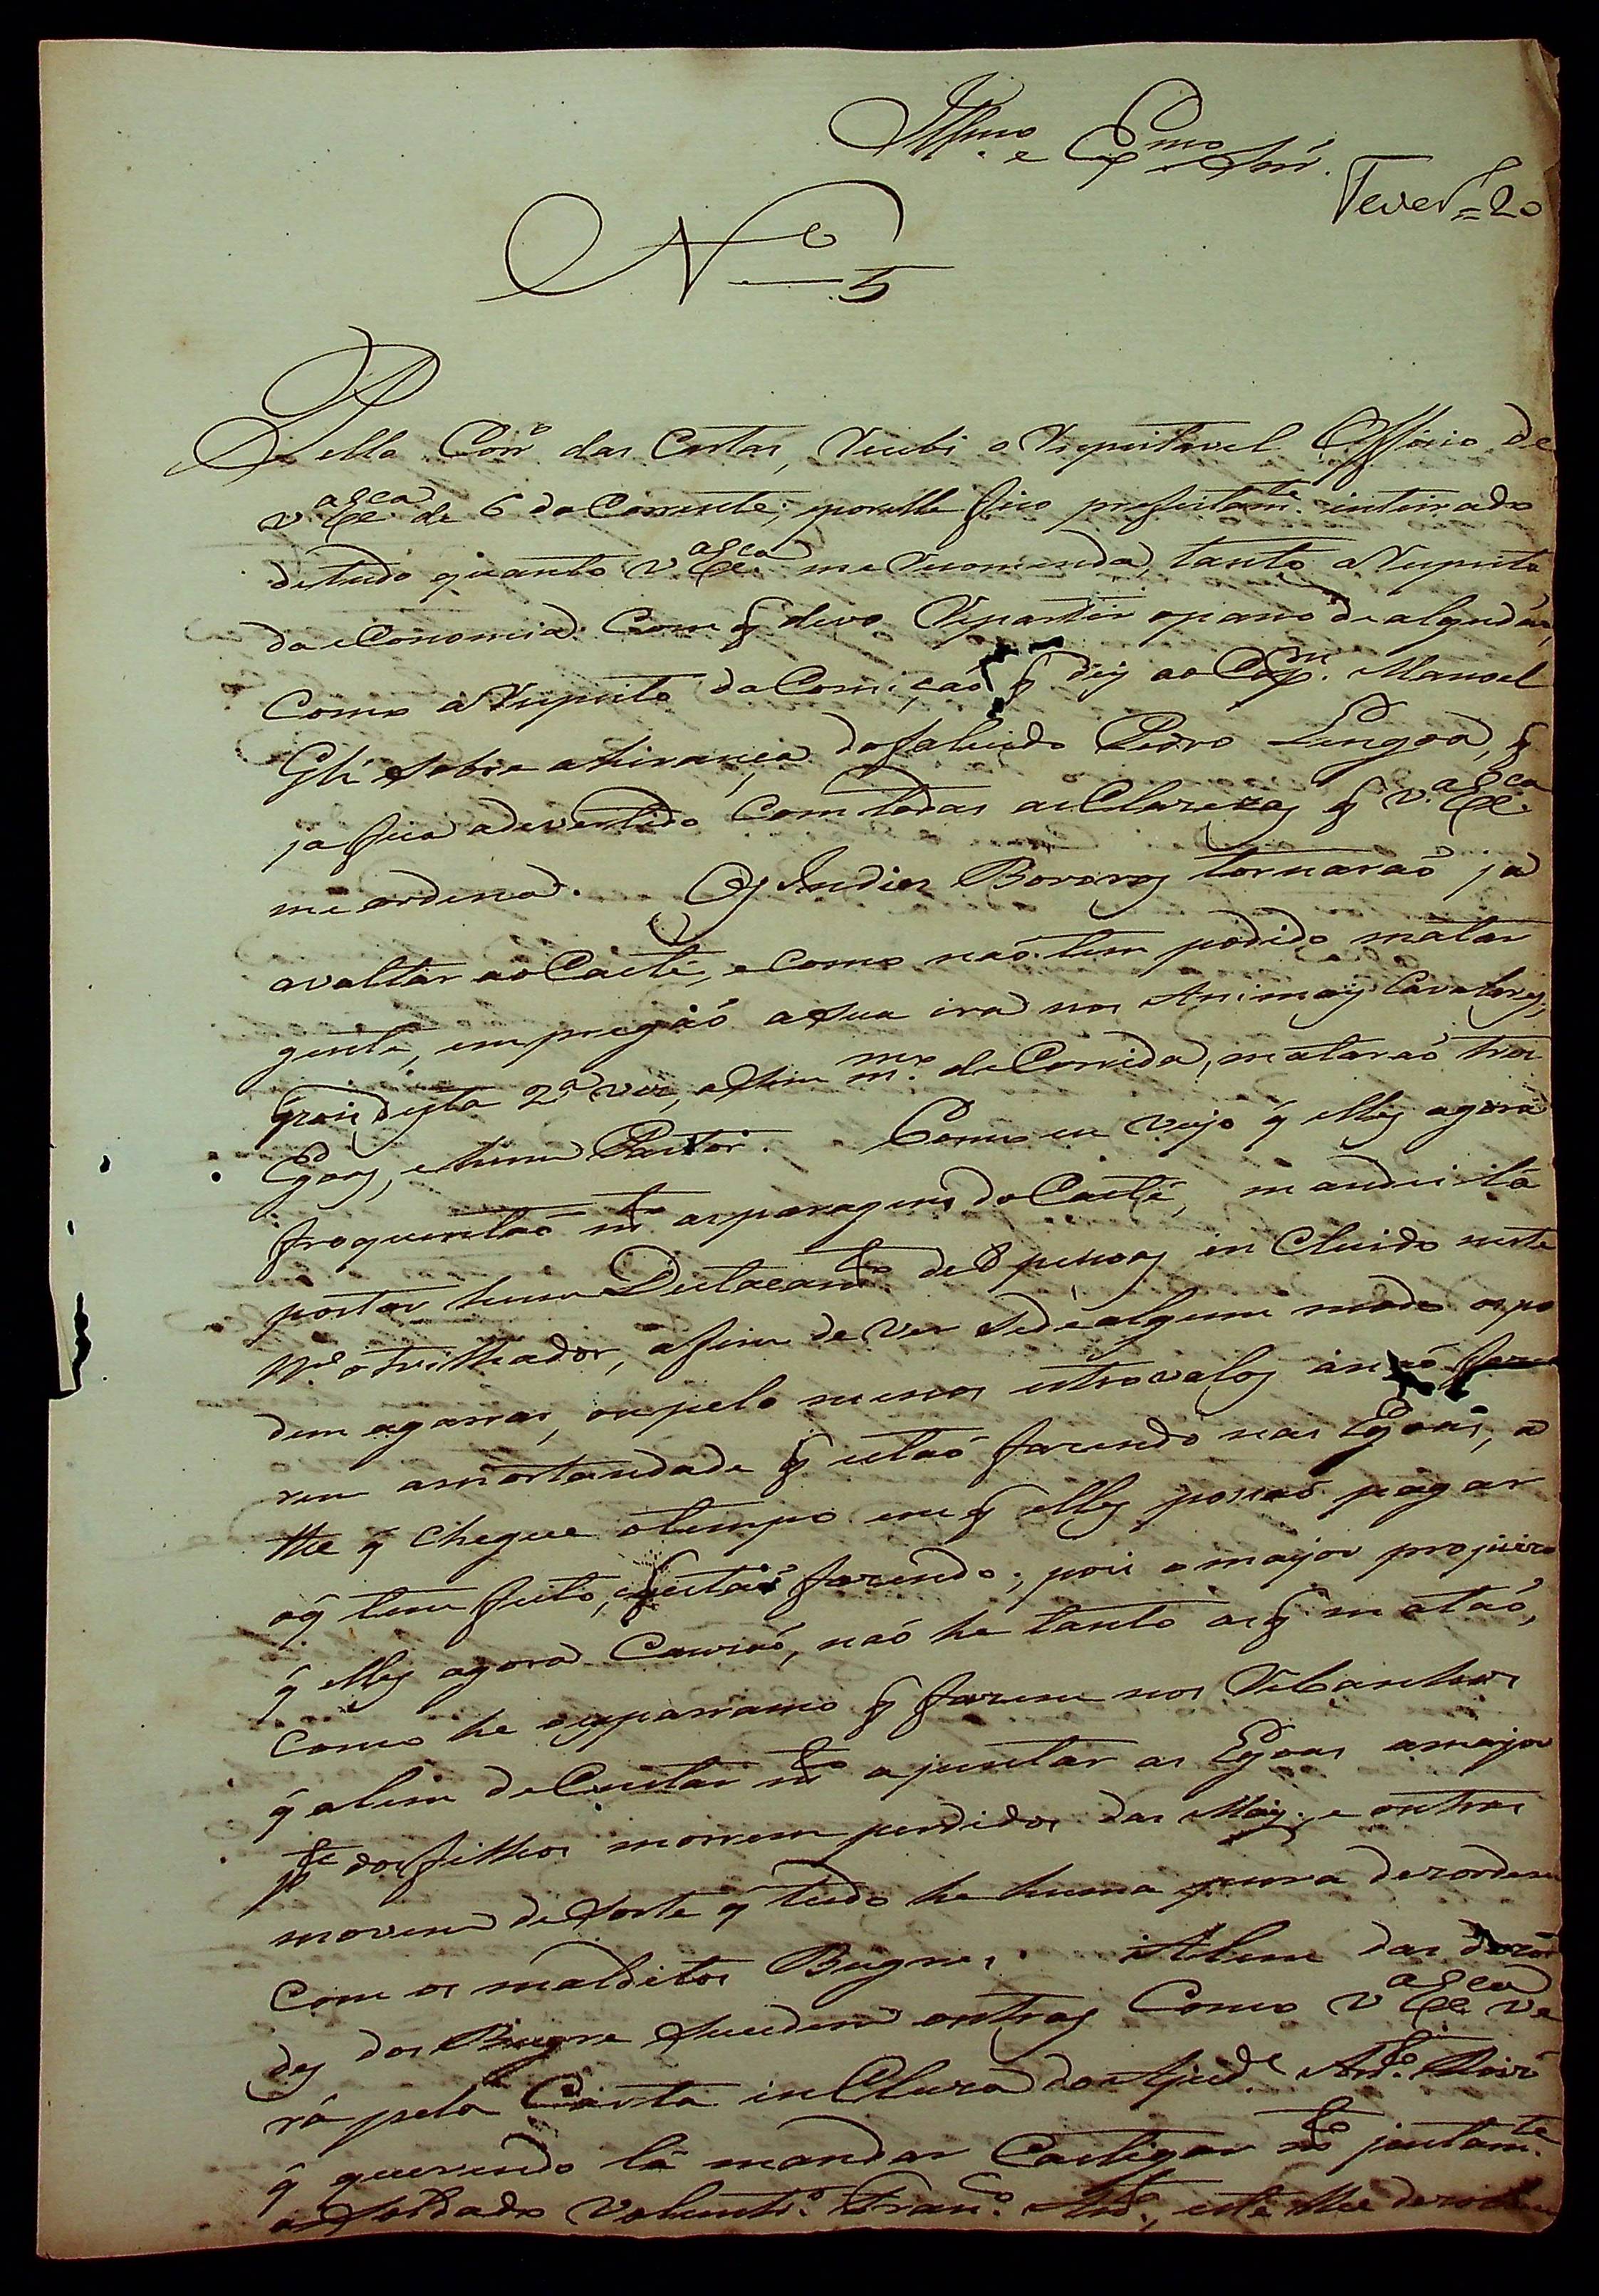 Illmo. e Exmo. Snr.
Fever.º 20
Nº 5
Pella Corrº das Cartas, Recebi o Respeitavel Officio de
V.ª Ex.ca de 6 do Corrente; eporelle fico prefeitam.te inteirado
detudo quanto V.ª Ex.ca me Recomenda, tanto aRespeito
da eConomia Com q̃ devo Repartir opano de algudão,
Como aRespeito da Comição q̃ dey ao Cap.m Manoel
sobre aherança dofalecido Pedro Lingoa, q̃
ja fica adevertido Com todas as Clarezas q̃ V.ª Ex.ca
me ordena. Os Indios Bororos tornaraõ ja
avoltar ao Caeté, eComo naõ tem podido matar
gente, empregaõ asua ira nos Animays Cavalares,
pois desta 2.ª vez, assim mmo. de Corrida, mataraõ tres
Egoas, ehum Pastor. Como eu vejo q̃ elles agora
froquentaõ mto. asparagens do Caeté, mandei lá
postar hum Destacamto. de 8 pesoas inCluido neste
Nº otrilhador, afim de ver sede algum modo ospo
dem agarrar, oupelo menos estrovalos anaõ faze
rem amortandade q̃ estaõ fazendo nas Egoas, a
the q̃ chegue otempo em q̃ elles posaõ pagar
oq̃ tem feito, eq̃ estaõ fazendo; pois omajor projuizo
q̃ elles agora Cauzaõ, naõ he tanto as q̃ mataõ,
Como he oesparramo q̃ fazem nos Rebanhos
q̃ alem deCustar mto. ajuntar as Egoas amajor
pte. dosfilhos morrem perdidos das Mays, e outros
movem desorte q̃ tudo he huma pura dezordem
Com os malditos Bugres. Alem das dezor
des dos Bugre sucedem outras Como V.ª Ex.ca ve
rá pela Carta inCluza do Ajud.e Ant.º
q̃ querendo lá mandar Castigar mto. justam.te
ao soldado Volunt.rº Franc.º Ant.º, este lhe